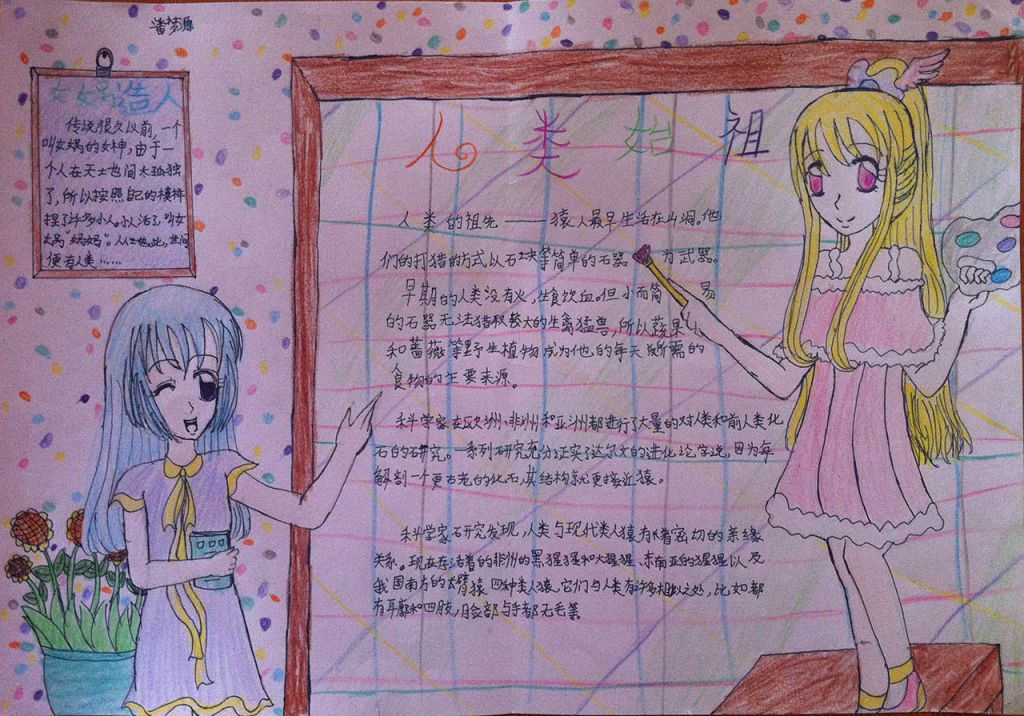 潘梦源
女娲造人
传说很久以前,一个
叫女娲的女神,由于一
个人在天土也间太孤独
了,所以按照自己的模样
捏了许多小人。小人活了,叫女
娲"妈妈"。从此,世间
便有人类……
人类始祖
人类的祖先——猿人最早生活在山洞。他
们的打猎的方式以石块等简单的石器为武器。
早期的人类没有火,生食饮血。但小而简易
的石器无法猎取较大的生禽猛兽,所以蔬果
和蔷薇等野生植物成为他们的每天所需的
食物的主要来源。
科学家在欧洲、非洲和亚洲都进行了大量的对人类和前人类化
石的研究。一系列研究充分证实了达尔文的进化论学说,因为每
解剖一个更古老的化石,其结构就更接近猿。
科学家研究发现,人类与现代类人猿有着密切的亲缘
关系。现在存活着的非洲的黑猩猩和大猩猩、东南亚的猩猩以及
我国南方的长臂猿四种类人猿。它们与人类有许多相似之处,比如都
有耳廓和四肢,脸部与手都无毛等